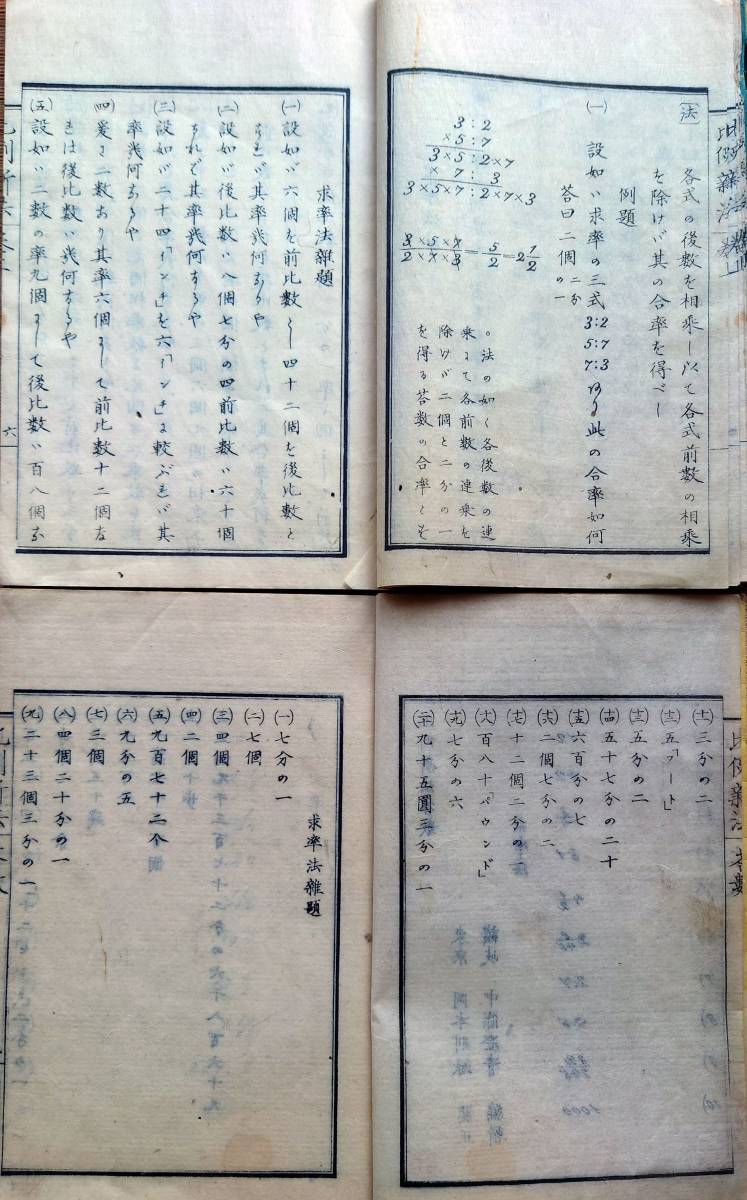 法
各式の後数を相乗し以て各式前数の相乗
を除けバ其の合率を得べし
例題
(一) 設如バ求率の三式 3:2 5:7 7:3 あり此の合率如何
答曰二個二分の一
3 : 2
×5 : 7
3×5 : 2×7
× 7 : 3
3×5×7 : 2×7×3
3×5×7/2×7×3=5/2=2 1/2
。法の如く各後数の連
乗にて各前数の連乗を
除けバ二個と二分の一
を得る答数の合率とす
求率法雜題
(一) 設如バ六個を前比数とし四十二個を後比数と
すれバ其率幾何なるや
(二) 設如バ後比数ハ八個七分の四前比数ハ六十個
なれバ其率幾何なるや
(三) 設如バ二十四「インチ」を六「インチ」に較ぶれバ其
率幾何なるや
(四) 爰に二数あり其率六個にして前比数十二個な
れは後比数ハ幾何なるや
(五) 設如ハ二数の率九個にして後比数ハ百八個な
六
比例新法
(十一) 三分の二
(十二) 五「フート」
(十三) 五分の二
(十四) 五十七分の二十
(十五) 六百分の七
(十六) 二個七分の二
(十七) 十二個二分の一
(十八) 百八十「パウンド」
(十九) 七分の六
(二十) 九十五圓三分の一
求率法雜題
(一) 七分の一
(二) 七個
(三) 四個
(四) 二個
(五) 九百七十二个
(六) 九分の五
(七) 三個
(八) 四個二十分の一
(九) 二十三個三分の一